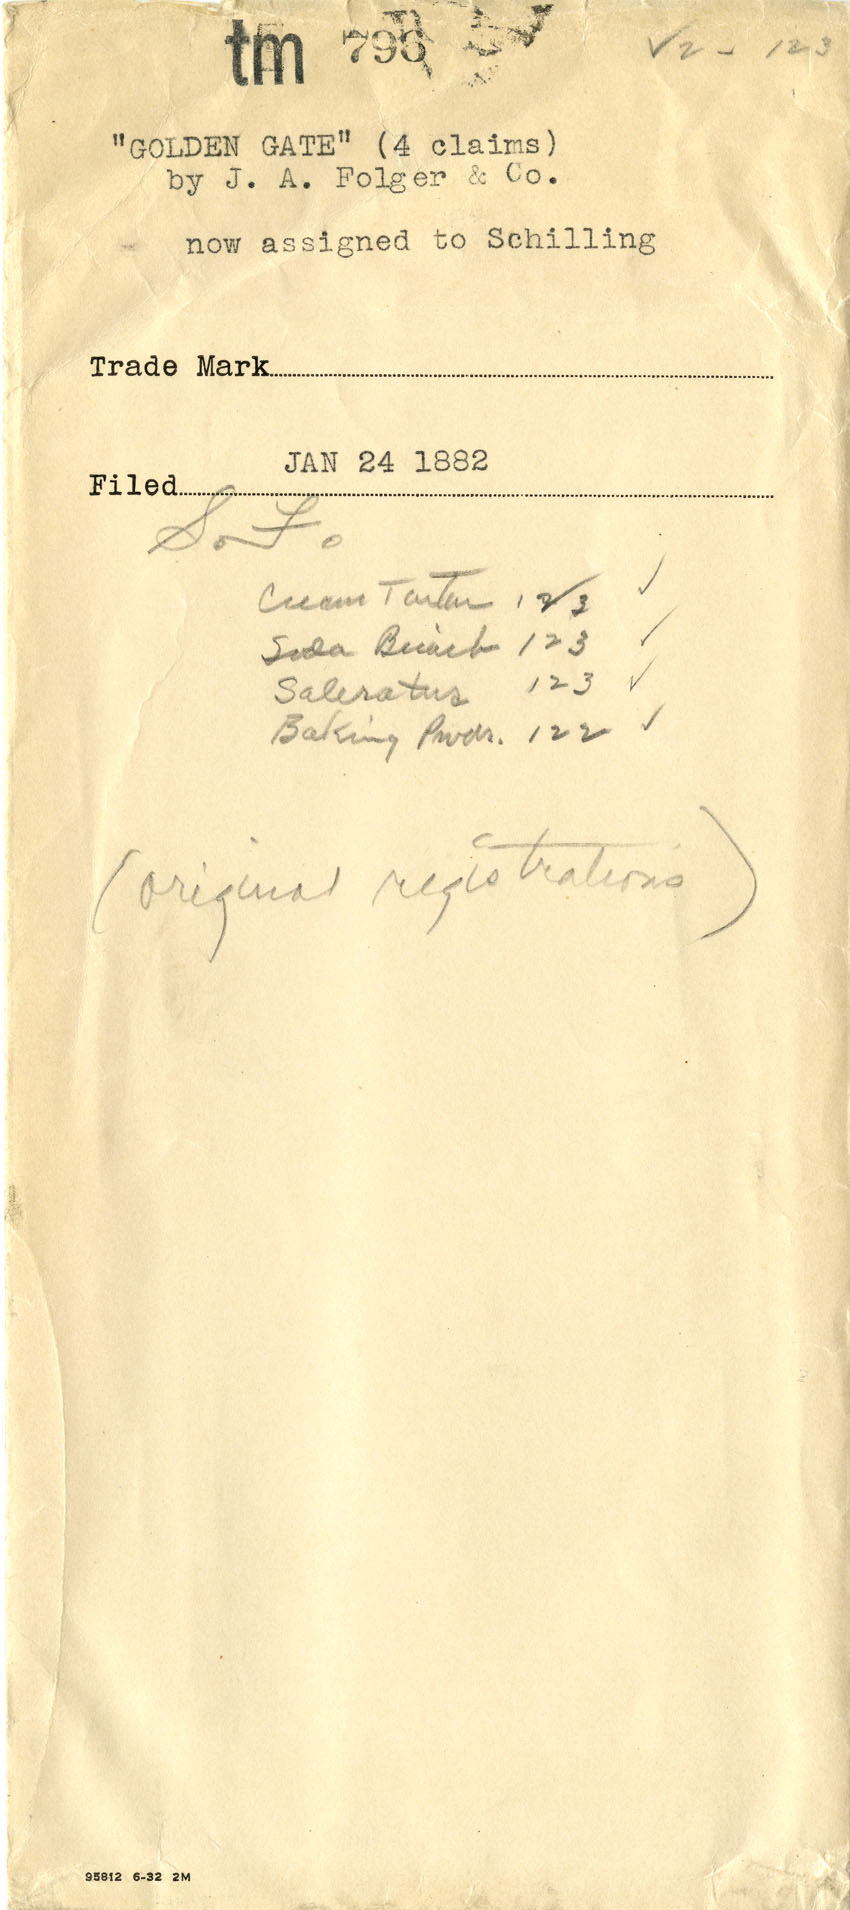 tm 796
✓2 - 123
"GOLDEN GATE" (4 claims)
by J. A. Folger & Co.
now assigned to Schilling
Trade Mark
JAN 24 1882
Filed
S. F.
Cream Tartar 123 ✓
Soda 123 ✓
Saleratus 123 ✓
Baking Pwdr. 122 ✓
(original registrations)
95812 6-32 2M